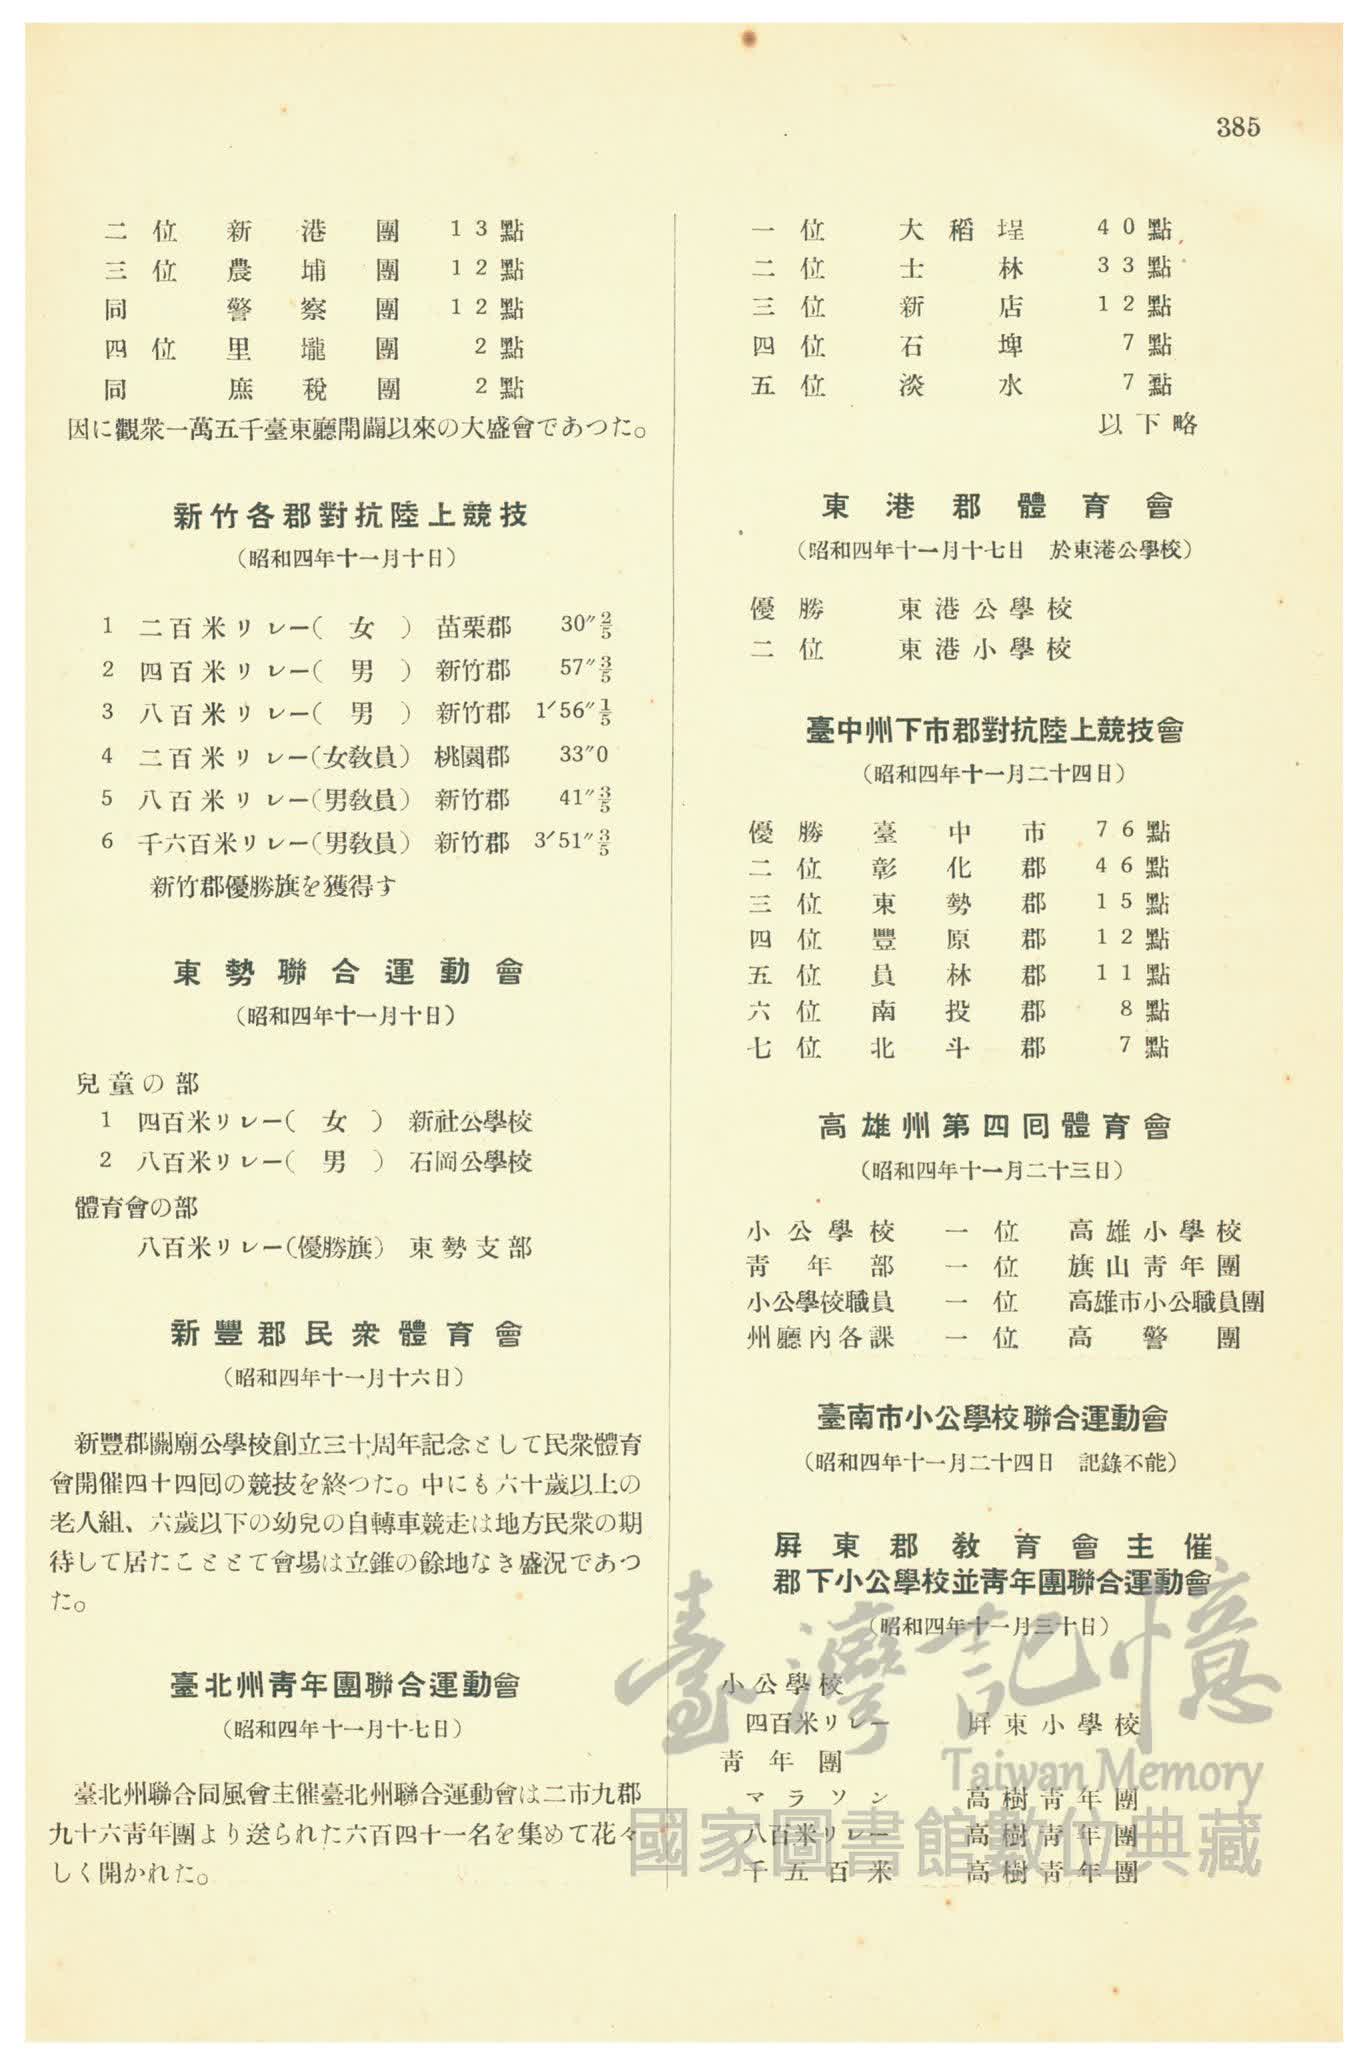 385
二位 新港團 13點
三位 農埔團 12點
同 警察團 12點
四位 里壠團 2點
同 庶稅團 2點
因に觀衆一萬五千臺東廳開闢以來の大盛會であつた。
新竹各郡對抗陸上競技
(昭和四年十一月十日)
1 二百米リレー(女) 苗栗郡 30″2/5
2 四百米リレー(男) 新竹郡 57″3/5
3 八百米リレー(男) 新竹郡 1′56″1/5
4 二百米リレー(女敎員) 桃園郡 33″0
5 八百米リレー(男敎員) 新竹郡 41″3/5
6 千六百米リレー(男敎員) 新竹郡 3′51″3/5
新竹郡優勝旗を獲得す
東勢聯合運動會
(昭和四年十一月十日)
兒童の部
1 四百米リレー(女) 新社公學校
2 八百米リレー(男) 石岡公學校
體育會の部
八百米リレー(優勝旗) 東勢支部
新豐郡民衆體育會
(昭和四年十一月十六日)
新豐郡關廟公學校創立三十周年記念として民衆體育
會開催四十四回の競技を終つた。中にも六十歲以上の
老人組、六歲以下の幼兒の自轉車競走は地方民衆の期
待して居たこととて會場は立錐の餘地なき盛況であつ
た。
臺北州靑年團聯合運動會
(昭和四年十一月十七日)
臺北州聯合同風會主催臺北州聯合運動會は二市九郡
九十六靑年團より送られた六百四十一名を集めて花々
しく開かれた。
一位 大稻埕 40點
二位 士林 33點
三位 新店 12點
四位 石埤 7點
五位 淡水 7點
以下略
東港郡體育會
(昭和四年十一月十七日 於東港公學校)
優勝 東港公學校
二位 東港小學校
臺中州下市郡對抗陸上競技會
(昭和四年十一月二十四日)
優勝 臺中市 76點
二位 彰化郡 46點
三位 東勢郡 15點
四位 豐原郡 12點
五位 員林郡 11點
六位 南投郡 8點
七位 北斗郡 7點
高雄州第四回體育會
(昭和四年十一月二十三日)
小公學校 一位 高雄小學校
靑年部 一位 旗山靑年團
小公學校職員 一位 高雄市小公職員團
州廳內各課 一位 高警團
臺南市小公學校聯合運動會
(昭和四年十一月二十四日 記錄不能)
屛東郡敎育會主催
郡下小公學校並靑年團聯合運動會
(昭和四年十一月三十日)
小公學校
四百米リレー 屛東小學校
靑年團
マラソン 高樹靑年團
八百米リレー 高樹靑年團
千五百米 高樹靑年團
臺灣記憶
Taiwan Memory
國家圖書館數位典藏